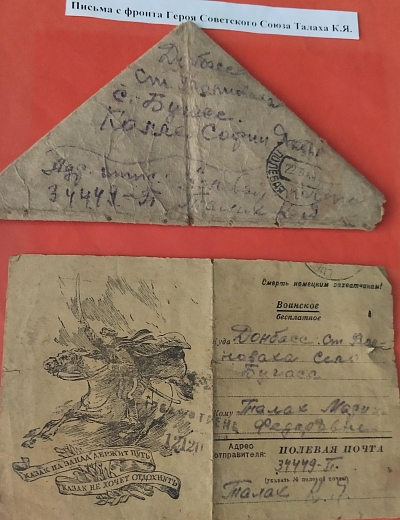 Письма с фронта Героя Советского Союза Талаха К.Я.
Донбасс
Ст.
с. Бугасс.
Колле Софии
34449-Г.
Талах К.Я
Смерть немецким захватчикам!
Воинское
бесплатное
Куда Донбасс. Ст. Вол-
новаха Село
Бугасс
Кому Талах Марии
Федоровне
Адрес
отправителя:
ПОЛЕВАЯ ПОЧТА
34449-Г.
Талах К.Я.
КАЗАК НА ЗАПАД ДЕРЖИТ ПУТЬ,
КАЗАК НЕ ХОЧЕТ ОТДОХНУТЬ